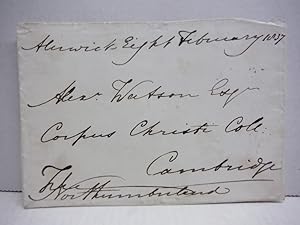 Alnwick Eight February 1837
Alexr Watson Esqr
Corpus Christi Coll:
Cambridge
Northumberland